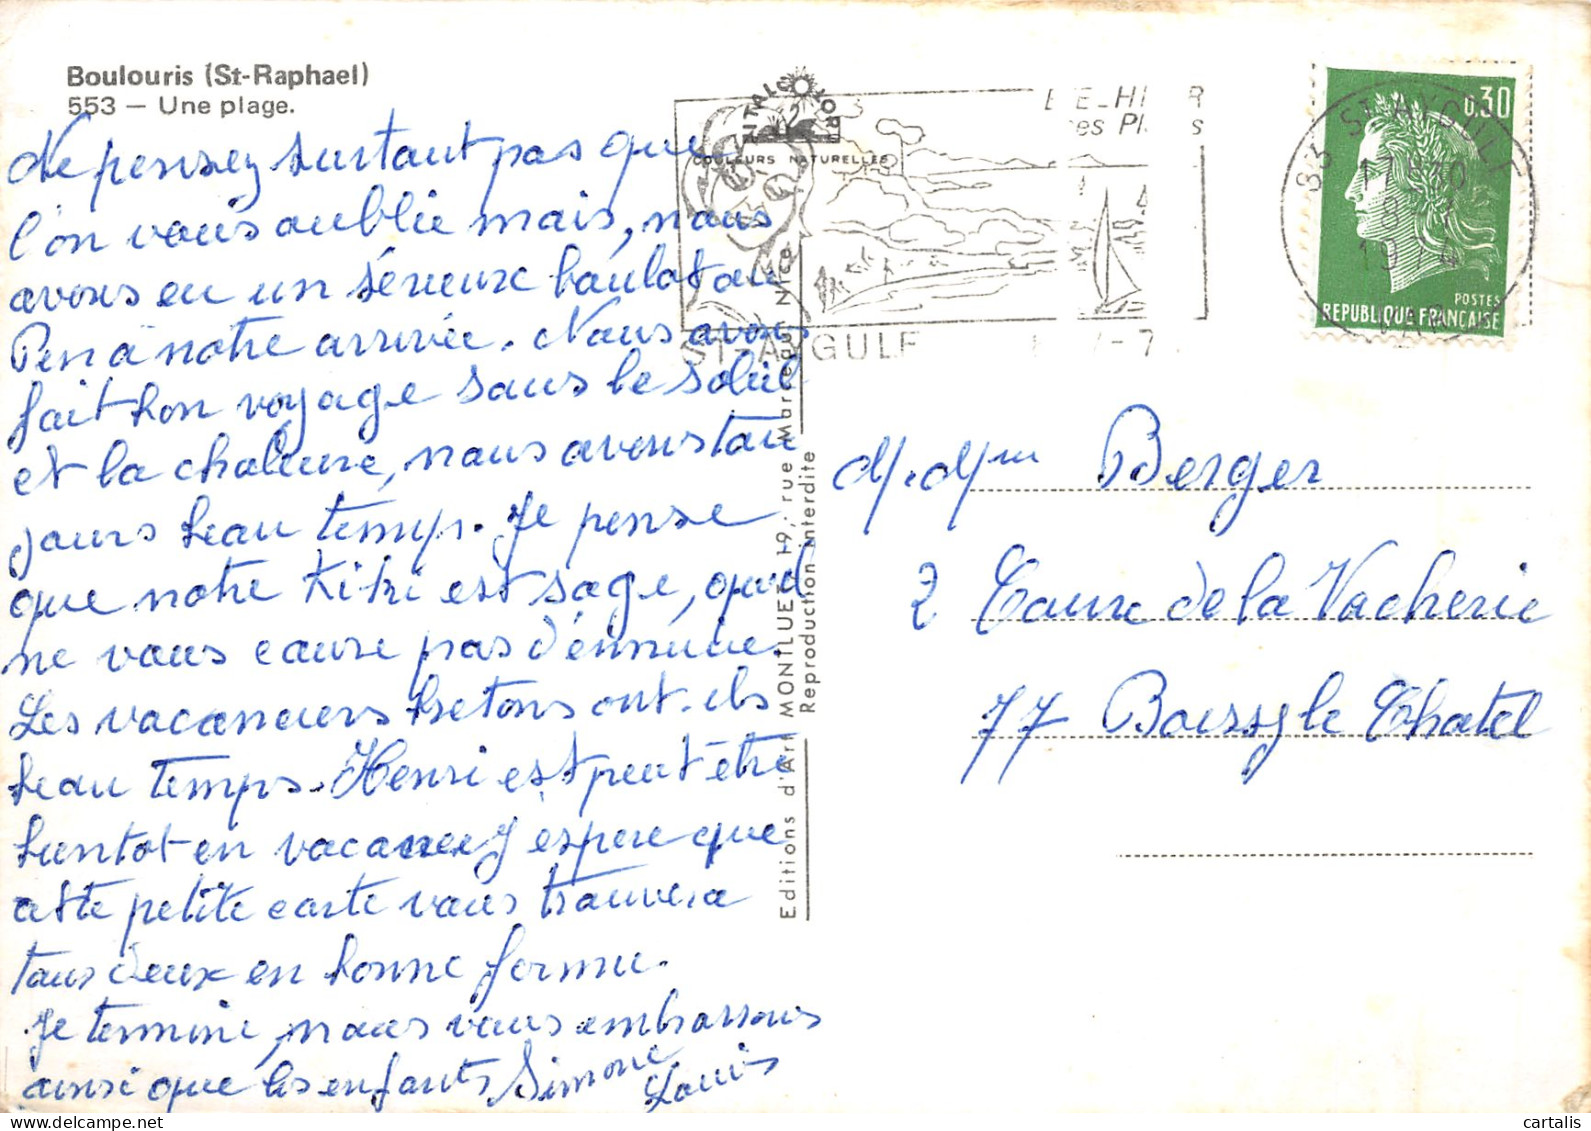 Boulouris (St-Raphael)
553 — Une plage.
Ne pensez surtout pas que
l'on vous oublie mais, nous
avons eu un sérieux boulot au
Pin à notre arrivée. Nous avons
fait bon voyage sous le soleil
et la chaleure, nous avons tou
jours beau temps. Je pense
que notre Kiki est sage, qu'il
ne vous cause pas d'ennuie.
Les vacanciers bretons ont-ils
beau temps. Henri est peut être
bientot en vacances J'espere que
cette petite carte vous trouvera
tous deux en bonne forme.
Je termine, nous vous embrassons
ainsi que les enfants Simone
Louis
ITALCOLOR
COULEURS NATURELLES
ST-AYGULF
Editions d'Art MONTLUET 19, rue Marceau Nice
Reproduction interdite
83 ST-AYGULF
17H30
8
1974
VAR
0,30
POSTES
REPUBLIQUE FRANÇAISE
M. Mme Berger
2 Cour de la Vacherie
77 Boissy le Chatel
cartalis